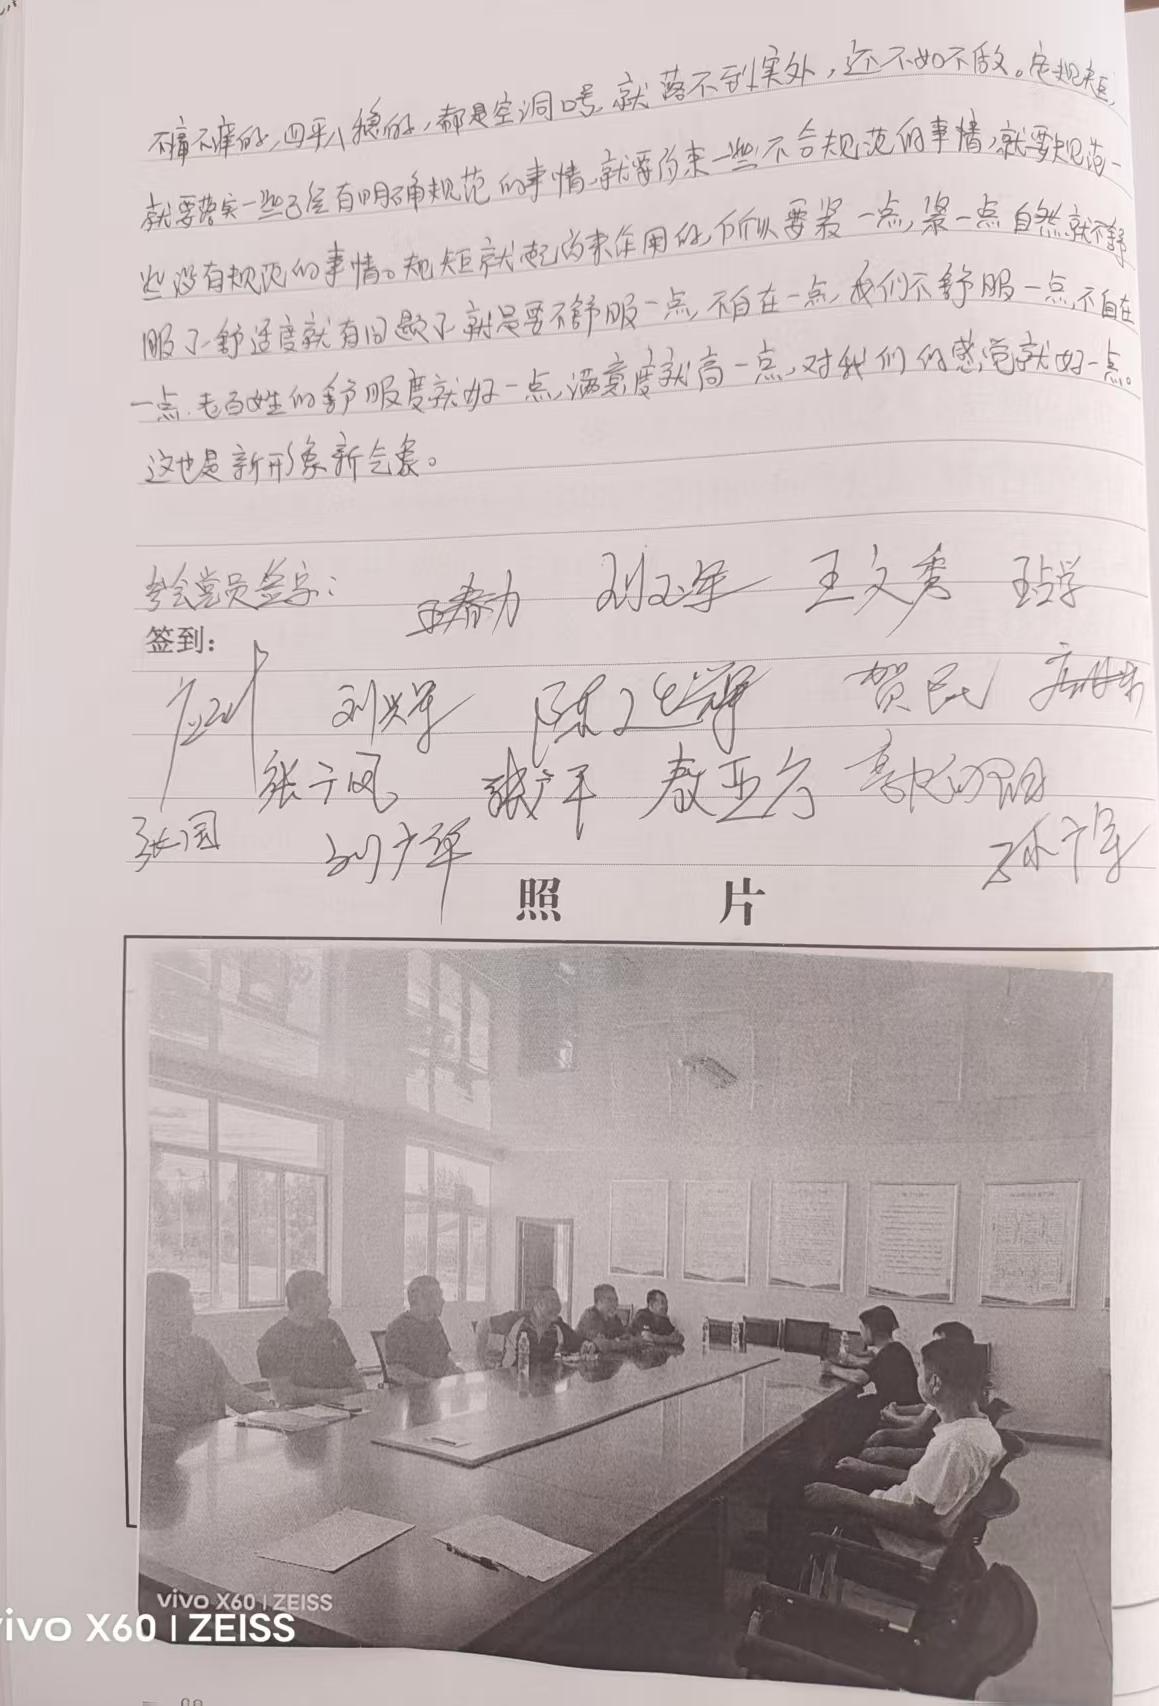 不痛不痒的,四平八稳的,都是空洞口号,就落不到实处,还不如不做。定规矩,
就要落实一些已经有明确规范的事情,就要约束一些不合规范的事情,就要规范一
些没有规范的事情。规矩就起约束作用的,所以要紧一点,紧一点自然就不舒
服了,舒适度就有问题了,就是要不舒服一点,不自在一点,我们不舒服一点,不自在
一点,老百姓的舒服度就好一点,满意度就高一点,对我们的感觉就好一点。
这也是新形象新气象。
参会党员签字: 王春力 刘玉军 王文秀 王占学
签到:
刘兴军 陈建辉 贺民
张广凤 张广平 敖亚
张国 刘广军 孙广军
照 片
vivo X60 | ZEISS
vivo X60 | ZEISS